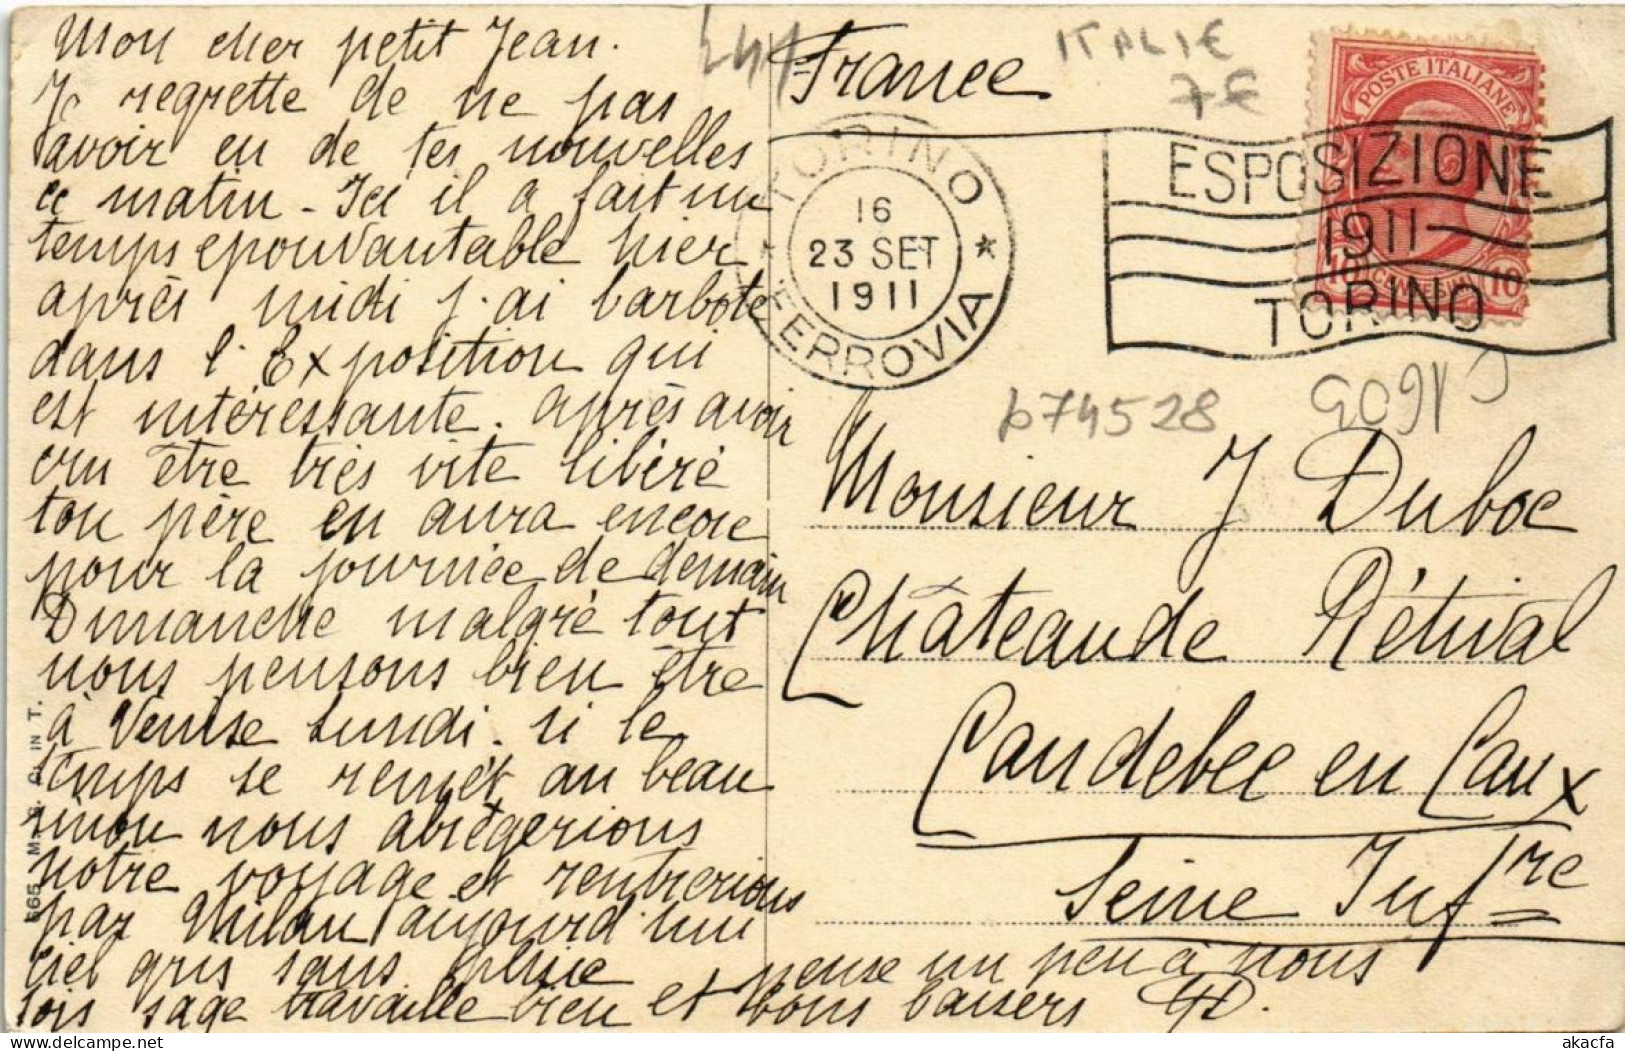 Mon cher petit Jean.
Je regrette de ne pas
avoir eu de tes nouvelles
ce matin - Ici il a fait un
temps epouvantable hier
après midi j'ai barboté
dans l'Exposition qui
est intéressante. après avoir
cru être très vite libéré
ton père en aura encore
pour la journée de demain
Dimanche malgré tout
nous pensons bien être
à Venise Lundi. si le
temps se remet au beau
sinon nous abrègerions
notre voyage et rentrerions
par Milan aujourd'hui
ciel gris sans pluie pense un peu à nous
sois sage travaille bien et bons baisers
France
ITALIE
7€
POSTE ITALIANE
10 10
TORINO
16
23 SET
1911
FERROVIA
ESPOSIZIONE
1911
TORINO
b74528
Monsieur J Duboc
Château de Rétival
Caudebec en Caux
Seine Infre
665 IN T.
akacfa